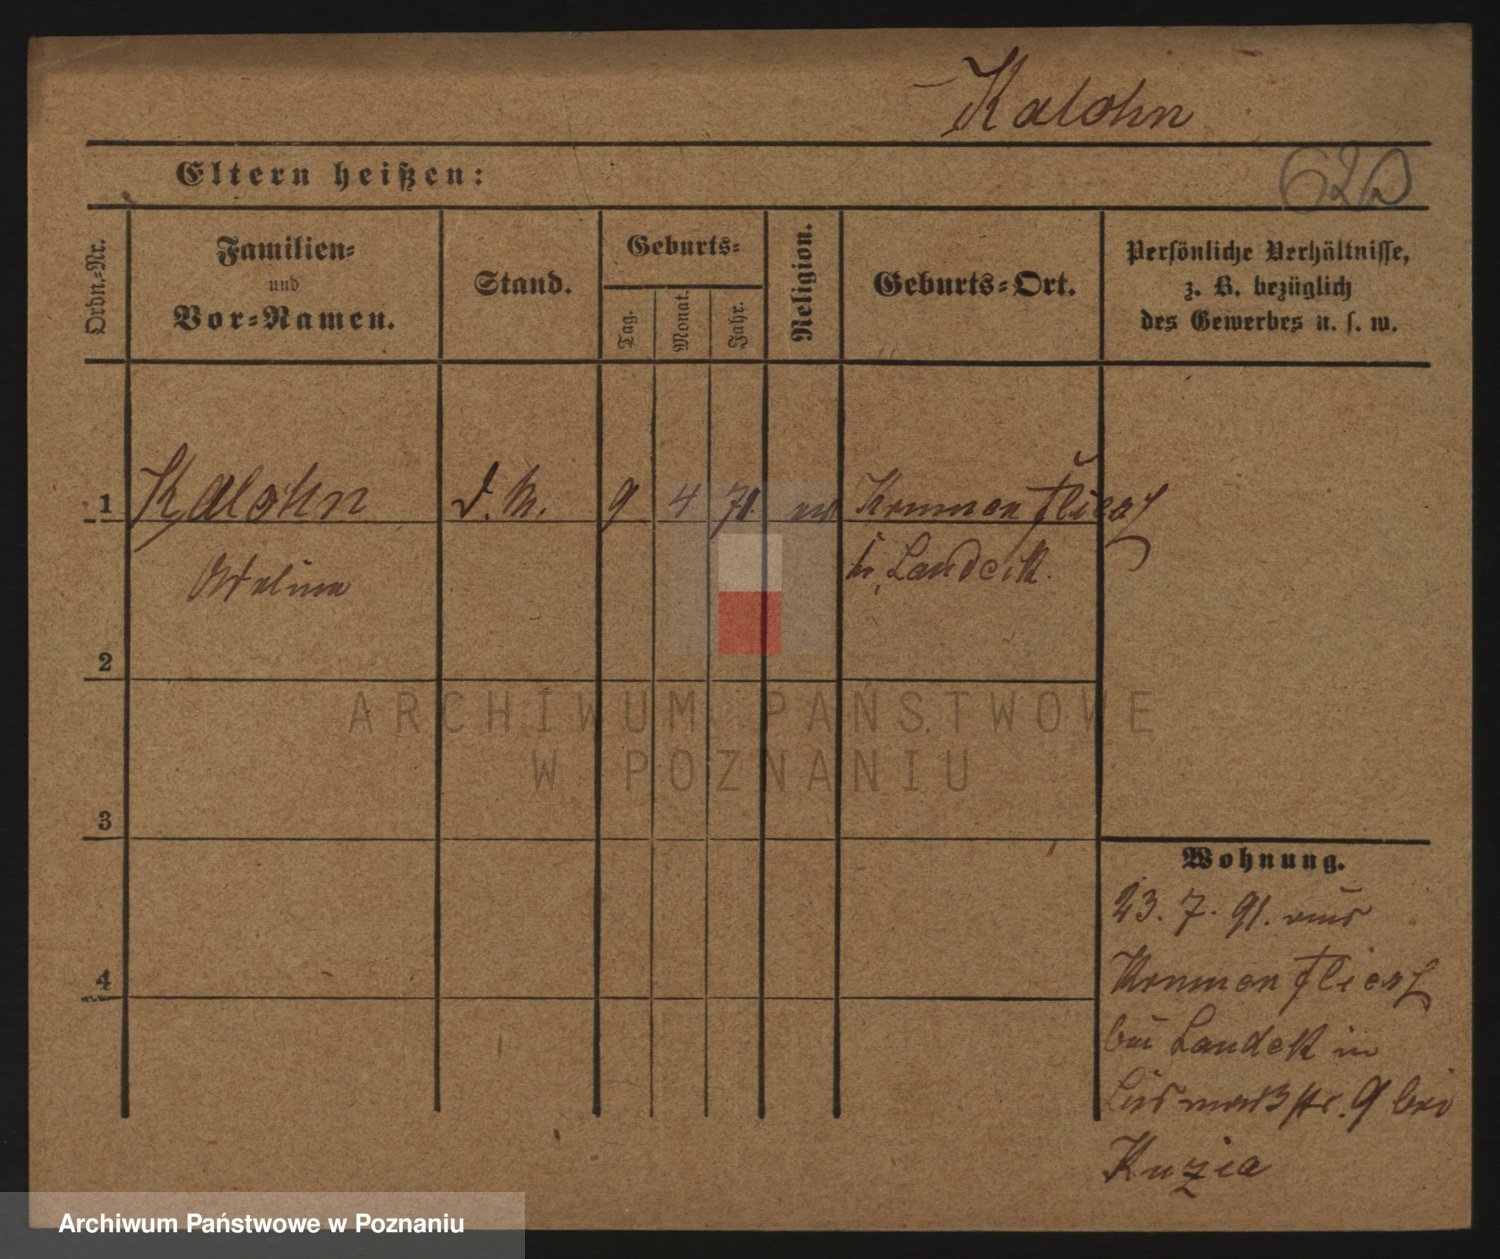 Kalohn
620
Eltern heißen:
Ordn.-Nr.
Familien-
und
Vor-Namen.
Stand.
Geburts-
Tag.
Monat.
Jahr.
Religion.
Geburts-Ort.
Persönliche Verhältnisse,
z. B. bezüglich
des Gewerbes u. s. w.
1 Kalohn d. M. 9 4 71 ev Krummenfliess
b. Landeck.
2
3
4
Wohnung.
23. 7. 91. aus
Krummenfliess
bei Landeck in
Bismarckstr. 9 bei
Kuzia
ARCHIWUM PAŃSTWOWE
W POZNANIU
Archiwum Państwowe w Poznaniu